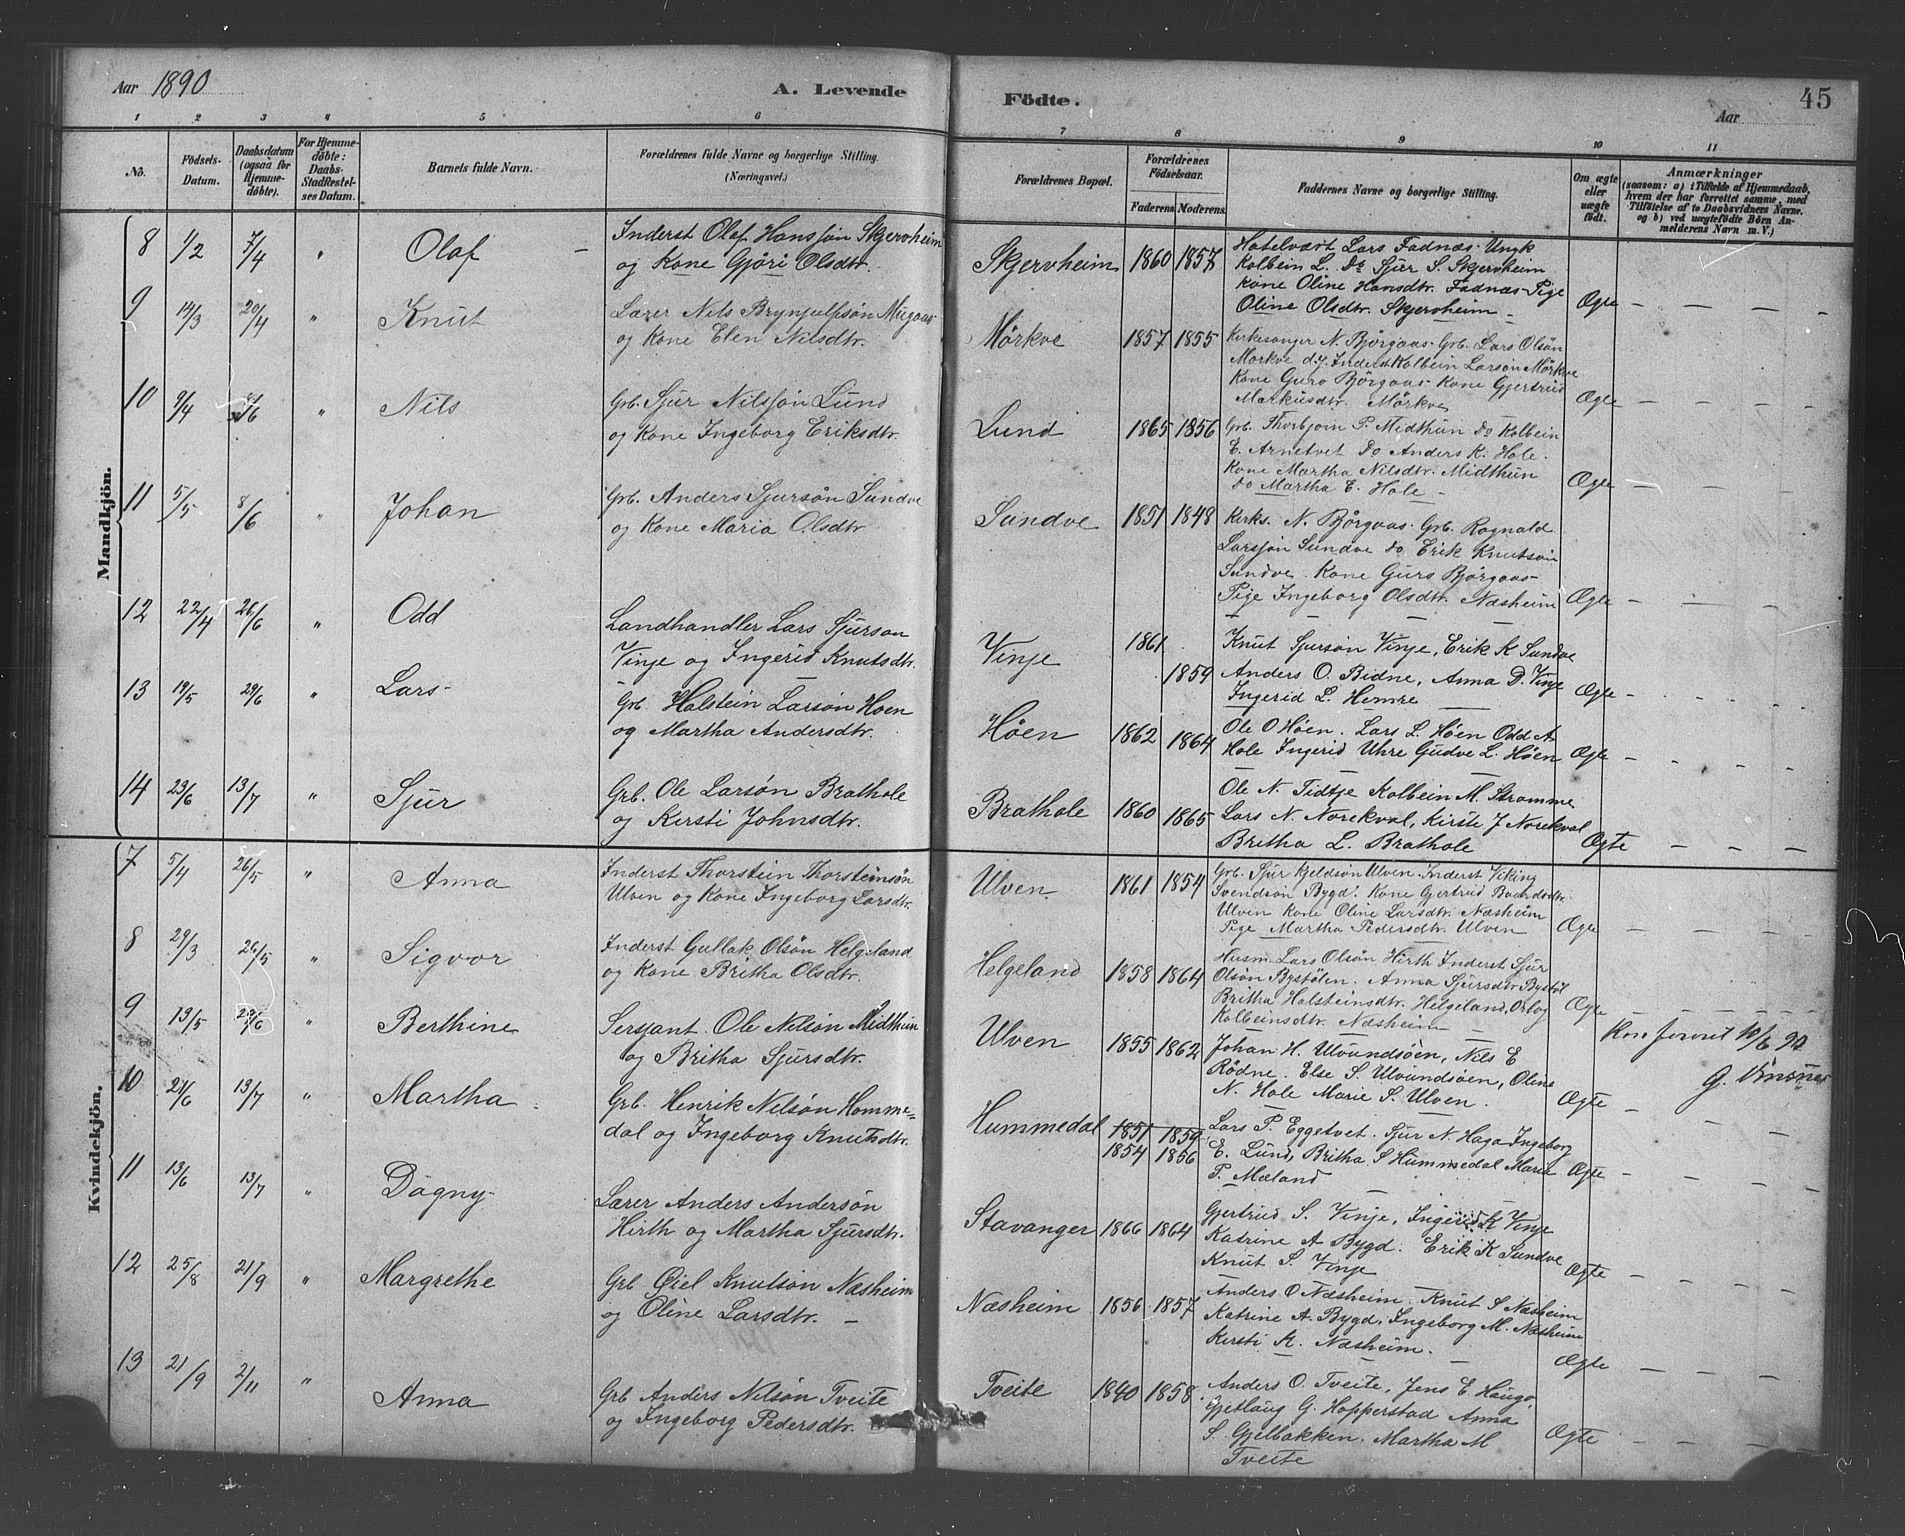 Aar 1890
A. Levende
Födte.
Aar
45
1 2 3 4 5 6 7 8 9 10 11
No.
Födsels-
Datum.
Daabsdatum
(ogsaa for
Hjemme-
döbte).
For Hjemme-
döbte:
Daabs-
Stadfæstel-
ses Datum.
Barnets fulde Navn.
Forældrenes fulde Navne og borgerlige Stilling.
(Næringsvei.)
Forældrenes Bopæl.
Forældrenes
Födselsaar.
Faderens. Moderens.
Faddernes Navne og borgerlige Stilling.
Om ægte
eller
uægte
födt.
Anmærkninger
(saasom: a) i Tilfælde af Hjemmedaab,
hvem der har forrettet samme, med
Tilföielse af to Daabsvidners Navne.
og b) ved uægtefödte Börn An-
melderens Navn m. V.)
Mandkjön.
8 1/2 7/4 " Olaf —
Inderst Olaf Hanssön Skjervheim
og Kone Gjöri Olsdtr.
Skjervheim 1860 1857
Hotelvært Lars Fadnæs. Ungk
Kolbein L. Do Sjur S. Skjervheim
Kone Oline Hansdtr. Fadnæs. Pige
Oline Olsdtr. Skjervheim —
Ægte — — — —
9 14/3 20/4 " Knut
Lærer Nils Brynjulfsön Mugaas
og Kone Elen Nilsdtr.
Mörkve 1857 1855
Kirkesanger N. Björgaas. Grb. Lars Olsön
Mörkve d.y. Inderst Kolbein Larsön Mörkve
Kone Guro Björgaas. Kone Gjertrud
Markusdtr. Mörkve
Ægte — — — —
10 9/4 /6 " Nils
Grb. Sjur Nilssön Lund
og Kone Ingeborg Eriksdtr.
Lund 1865 1856
Grb. Thorbjörn P. Midthun Do Kolbein
E. Arnetvet Do Anders K. Hole.
Kone Martha Nilsdtr. Midthun
Do Martha E. Hole —
Ægte — — — —
11 5/5 8/6 " Johan
Grb. Anders Sjursön Sundve
og Kone Maria Olsdtr
Sundve 1851 1848
Kirks. N. Björgaas. Grb. Rognald
Larssön Sundve do Erik Knutsön
Sundve. Kone Guro Björgaas
Pige Ingeborg Olsdtr. Næsheim
Ægte — — — —
12 22/4 26/6 " Odd
Landhandler Lars Sjurson
Vinje og Ingerid Knutsdtr.
Vinje 1861 1859
Knut Sjurson Vinje, Erik K Sundve
Anders O. Bidne, Anna D. Vinje
Ingerid L. Hemre
Ægte —
13 19/5 29/6 " Lars
Grb. Holstein Larsön Höen
og Martha Andersdtr.
Höen 1862 1864
Ole O Höen. Lars L. Höen Odd A.
Hole Ingerid Uhre Gudve L. Höen
Ægte
14 23/6 13/7 " Sjur
Grb. Ole Larsön Brathole
og Kersti Johnsdtr.
Brathole 1860 1865
Ole N. Tidtje Kolbein M. Strømme
Lars N. Norekval, Kirste J Norekval
Britha L. Brathole
Ægte — — — —
Kvindekjön.
7 5/4 26/5 " Anna
Inderst Thorstein Thorsteinsön
Ulven og Kone Ingeborg Larsdtr.
Ulven 1861 1854
Grb. Sjur Kjeldsön Ulven Inderst Viking
Svendsön Bygd. Kone Gjertrud
Ulven Kone Oline Larsdtr. Næsheim
Pige Martha Pedersdtr. Ulven
Ægte — — — —
8 29/3 26/5 " Sigvor
Inderst Gullak Olsön Helgeland
og Kone Britha Olsdtr.
Helgeland 1858 1864
Husm. Lars Olsön Hirth Inderst Sjur
Olsön Bystölen. Anna Sjursdtr Bystöl
Britha Holsteinsdtr. Helgeland,
Kolbeinsdtr. Næsheim
Ægte — — — —
9 13/5 29/6 " Berthine
Sersjant Ole Nelsön Midthun
og Britha Sjursdtr.
Ulven 1855 1862
Johan H. Ulvundsöen, Nils E
Rödne. Else S. Ulvundsöen, Oline
N. Hole Marie S. Ulven.
Ægte —
Konfereret 10/6 90
G.
10 21/6 13/7 " Martha
Grb. Henrik Nelsön Homme-
dal og Ingeborg Knutsdtr.
Hummedal 1851 1859
1854 1856
Lars P. Eggetvet. Sjur N. Haga Ingeborg
E. Lund, Britha S Hummedal Marie
P. Mæland
Ægte —
11 13/6 13/7 " Dagny
Lærer Anders Andersön
Hirth og Martha Sjursdtr.
Stavanger 1866 1864
Gjertrud S. Vinje, Ingerid K Vinje
Katrine A Bygd. Erik K Sundve
Knut S. Vinje
Ægte — — — —
12 25/8 21/9 " Margrethe
Grb Eiel Knutsön Næsheim
og Oline Larsdtr. —
Næsheim 1856 1857
Anders O Næsheim. Knut S Næsheim
Katrine A. Bygd, Ingeborg M. Næsheim
Kersti K. Næsheim.
Ægte — — — —
13 21/9 2/11 " Anna
Grb Anders Nelsön Tveite
og Ingeborg Pedersdtr.
Tveite 1840 1858
Anders O. Tveite, Jens E. Haugo
Gjetlaug G. Hopperstad Anna
S. Gjelbakken. Martha M
Tveite
Ægte — — — —